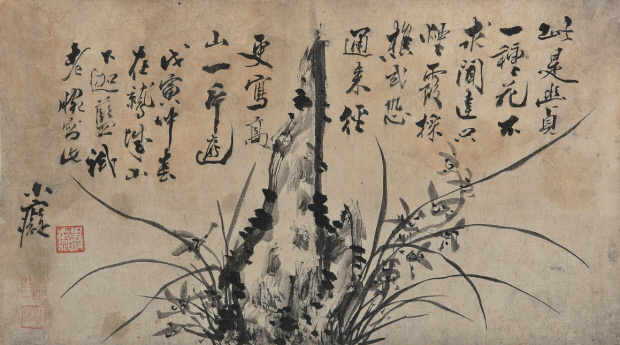 此是幽貞
一種花不
求聞達只
煙霞採
樵或恐
通来徑
更寫高
山一片遮
戊寅仲春
在鷲城山
下迦藍
老寫此
小癡